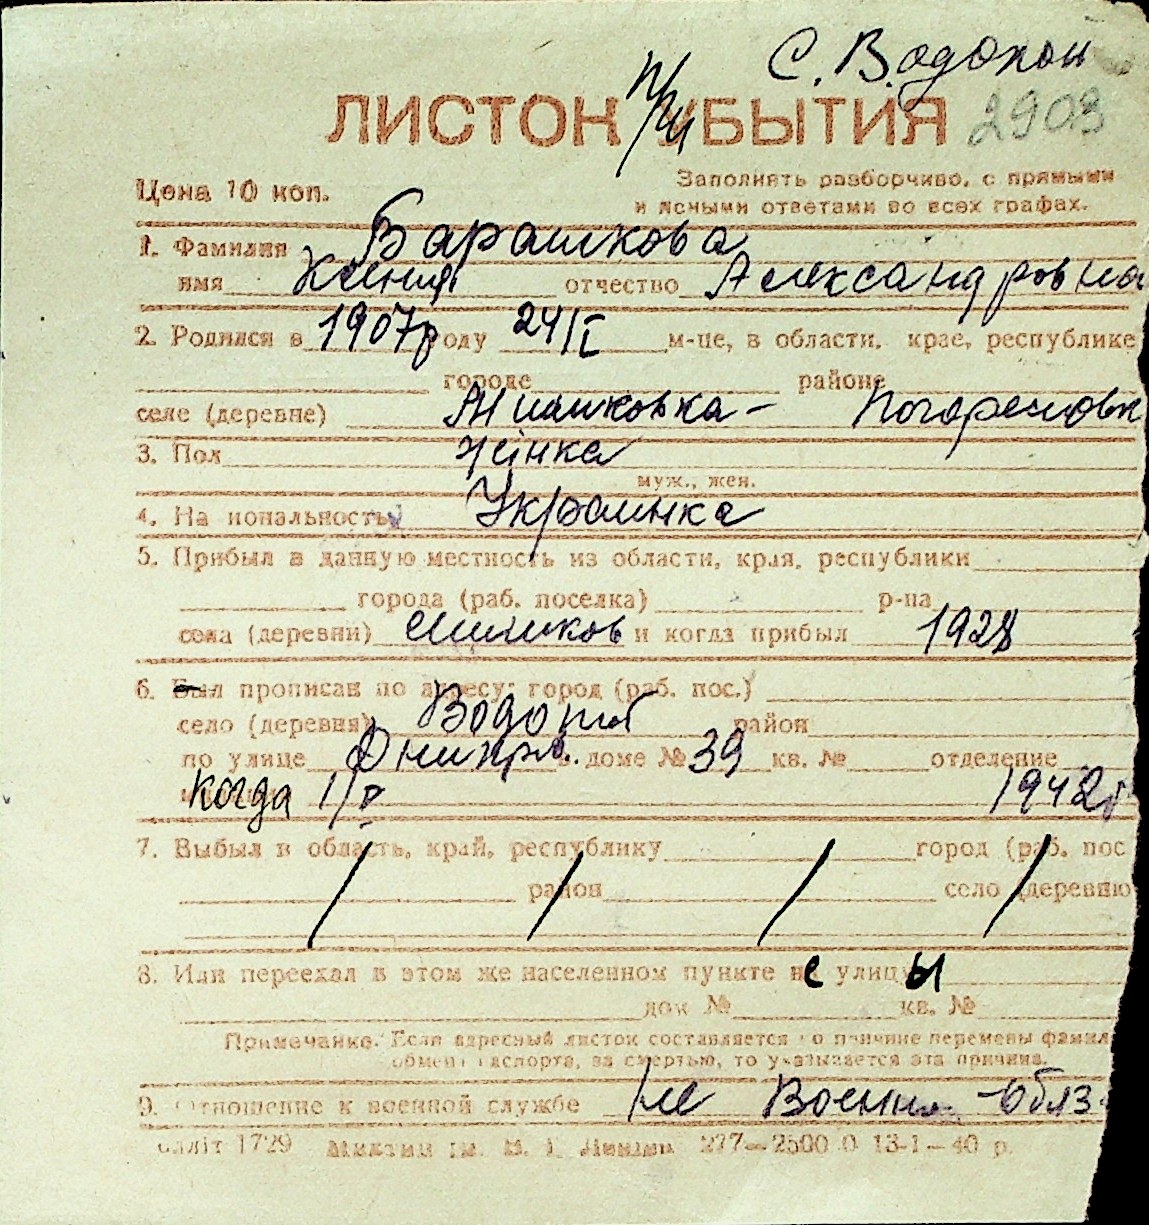 С. Водопой
ЛИСТОК УБЫТИЯ 2903
При
Цена 10 коп.
Заполнять разборчиво, с прямыми
и ясными ответами во всех графах.
1. Фамилия Барашкова
имя Ксения отчество Александровна
2. Родился в 1907 году 24/I м-це, в области, крае, республике
городе районе
селе (деревне)
3. Пол жінка
муж., жен.
4. Национальность Украинка
5. Прибыл в данную местность из области, края, республики
города (раб. поселка) р-на
села (деревни) и когда прибыл 1928
6. Был прописан по адресу: город (раб. пос.)
село (деревня) Водопой район
по улице Днипро. в доме № 39 кв. № отделение
когда 1942г
7. Выбыл в область, край, республику город (раб. пос
район село (деревню
8. Или переехал в этом же населенном пункте не улицы
дом № кв. №
Примечание. Если адресный листок составляется по причине перемены фамил
обмена паспорта, за смертью, то указывается эта причина.
9. Отношение к военной службе Не Военно-обяз.
1729 277—2500 0 13-1—40 р.